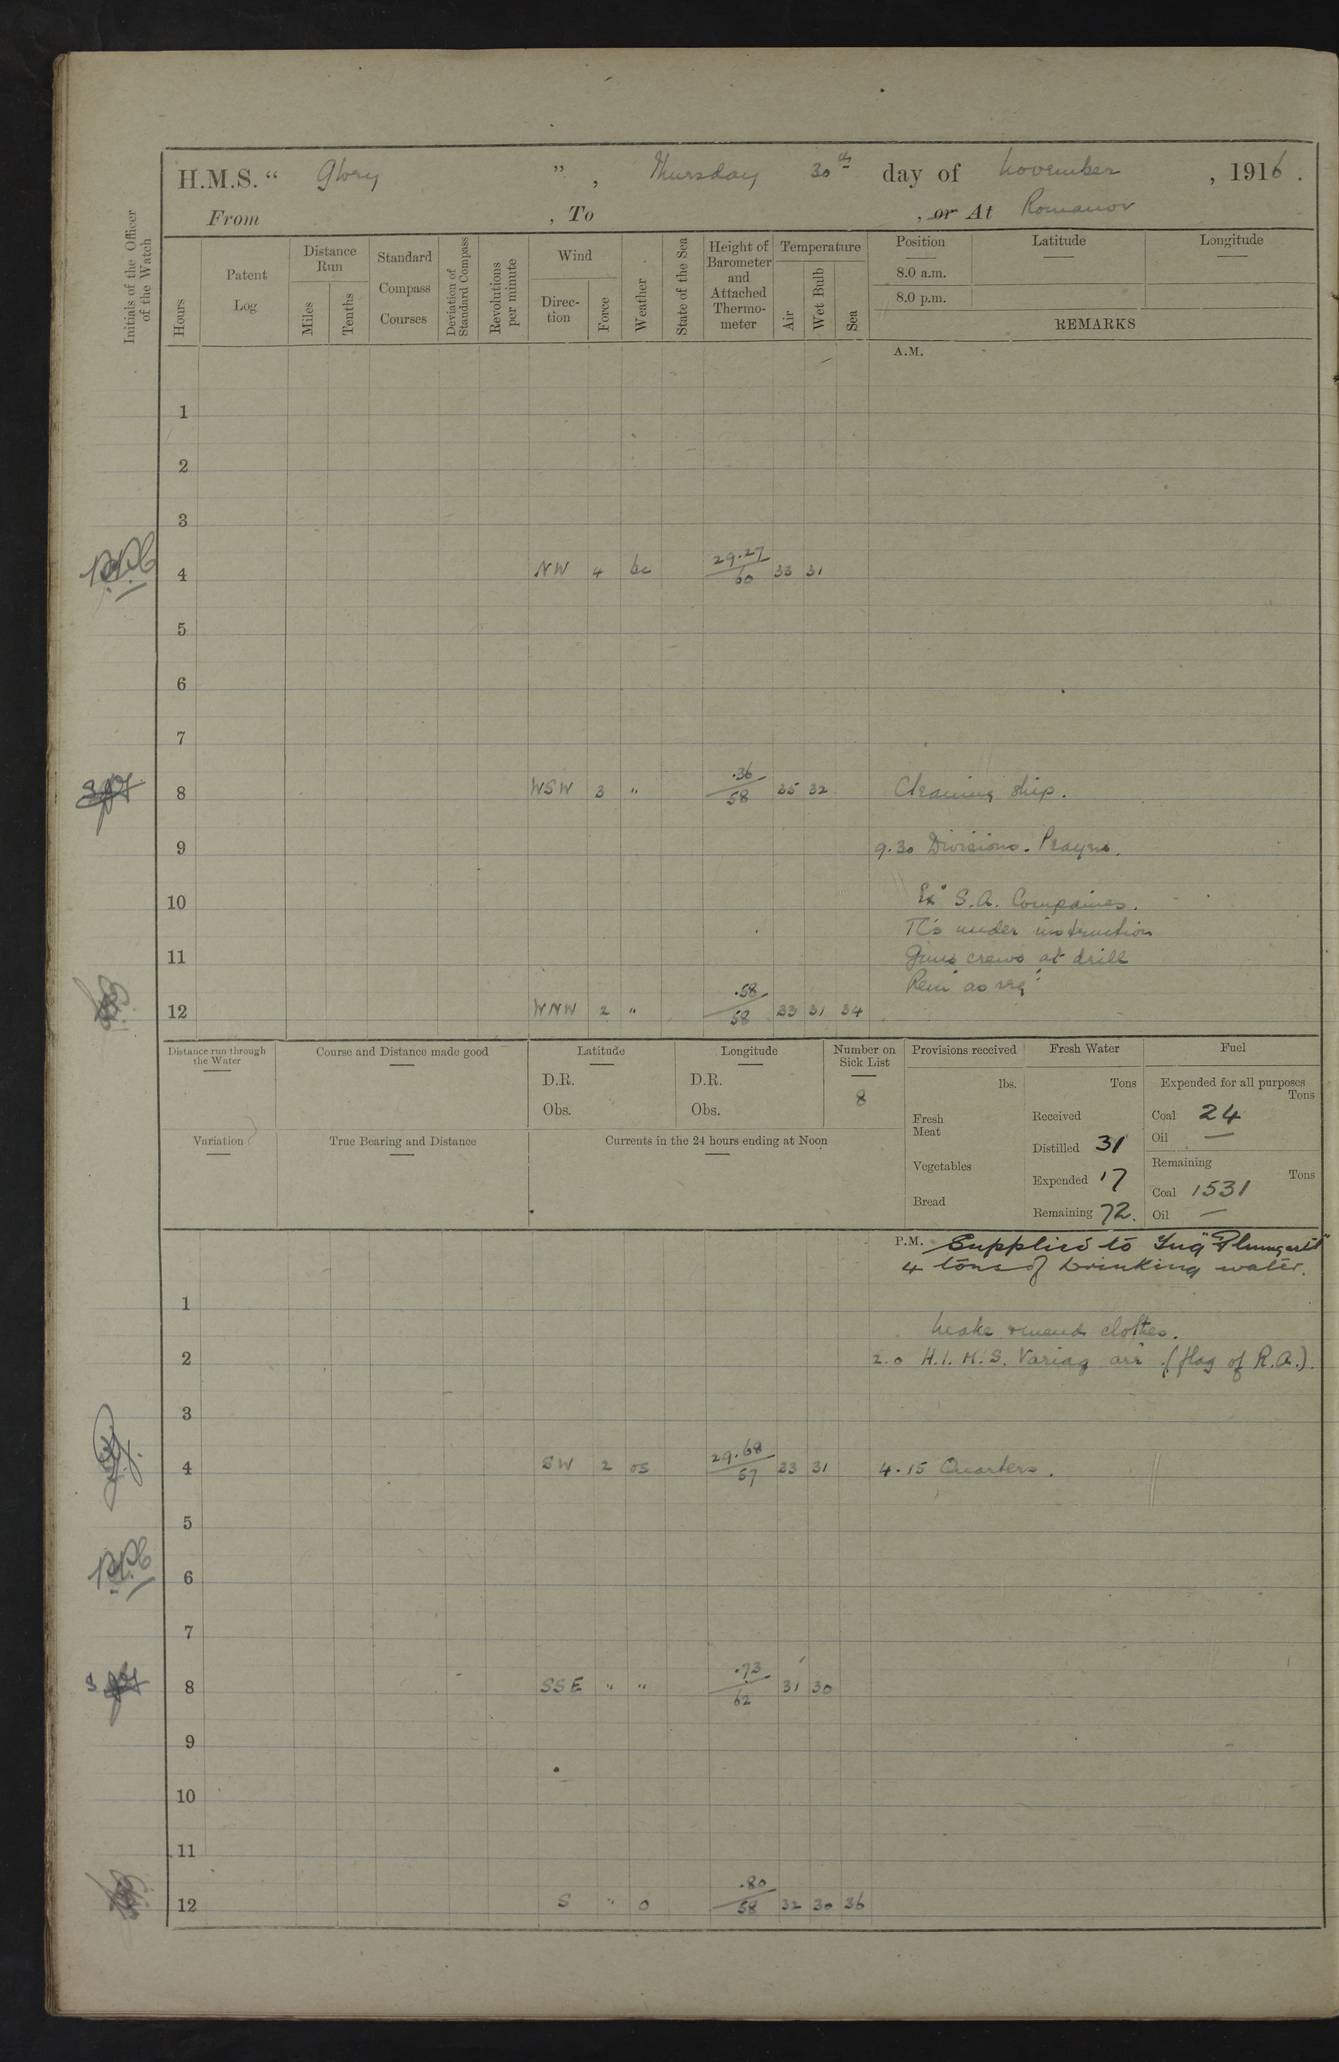 H.M.S. “ Glory ” , Thursday 30th day of November , 1916 .
From , To , or At Romanov
Initials of the Officer of the Watch
Hours
Patent Log
Distance Run
Miles
Tenths
Standard Compass Courses
Deviation of Standard Compass
Revolutions per minute
Wind
Direc- tion
Force
Weather
State of the Sea
Height of Barometer and Attached Thermo- meter
Temperature
Air
Wet Bulb
Sea
Position
8.0 a.m.
8.0 p.m.
Latitude
Longitude
REMARKS
A.M.
1
2
3
4 NW 4 bc 29.27/60 33 31
5
6
7
8 WSW 3 " .36/58 35 32 Cleaning ship.
9 9.30 Divisions. Prayers.
10 Exd S.A. Companies.
TCs under instruction
11 Guns crews at drill
Remr as reqd
12 WNW 2 " .58/58 33 31 34
Distance run through the Water
Course and Distance made good
Latitude
D.R.
Obs.
Longitude
D.R.
Obs.
Number on Sick List
8
Provisions received
lbs.
Fresh Meat
Vegetables
Bread
Fresh Water
Tons
Received
Distilled 31
Expended 17
Remaining 72.
Fuel
Expended for all purposes
Tons
Coal 24
Oil —
Remaining
Tons
Coal 1531
Oil —
Variation
True Bearing and Distance
Currents in the 24 hours ending at Noon
P.M. Supplied to Tug
4 tons of Drinking water.
1
Make & mend clothes.
2 2.0 H.I.M.S. Variag arr. (flag of R.A.)
3
4 SW 2 os 29.68/57 33 31 4.15 Quarters.
5
6
7
8 SSE " " .73/62 31 30
9
10
11
12 S " o .80/58 32 30 36